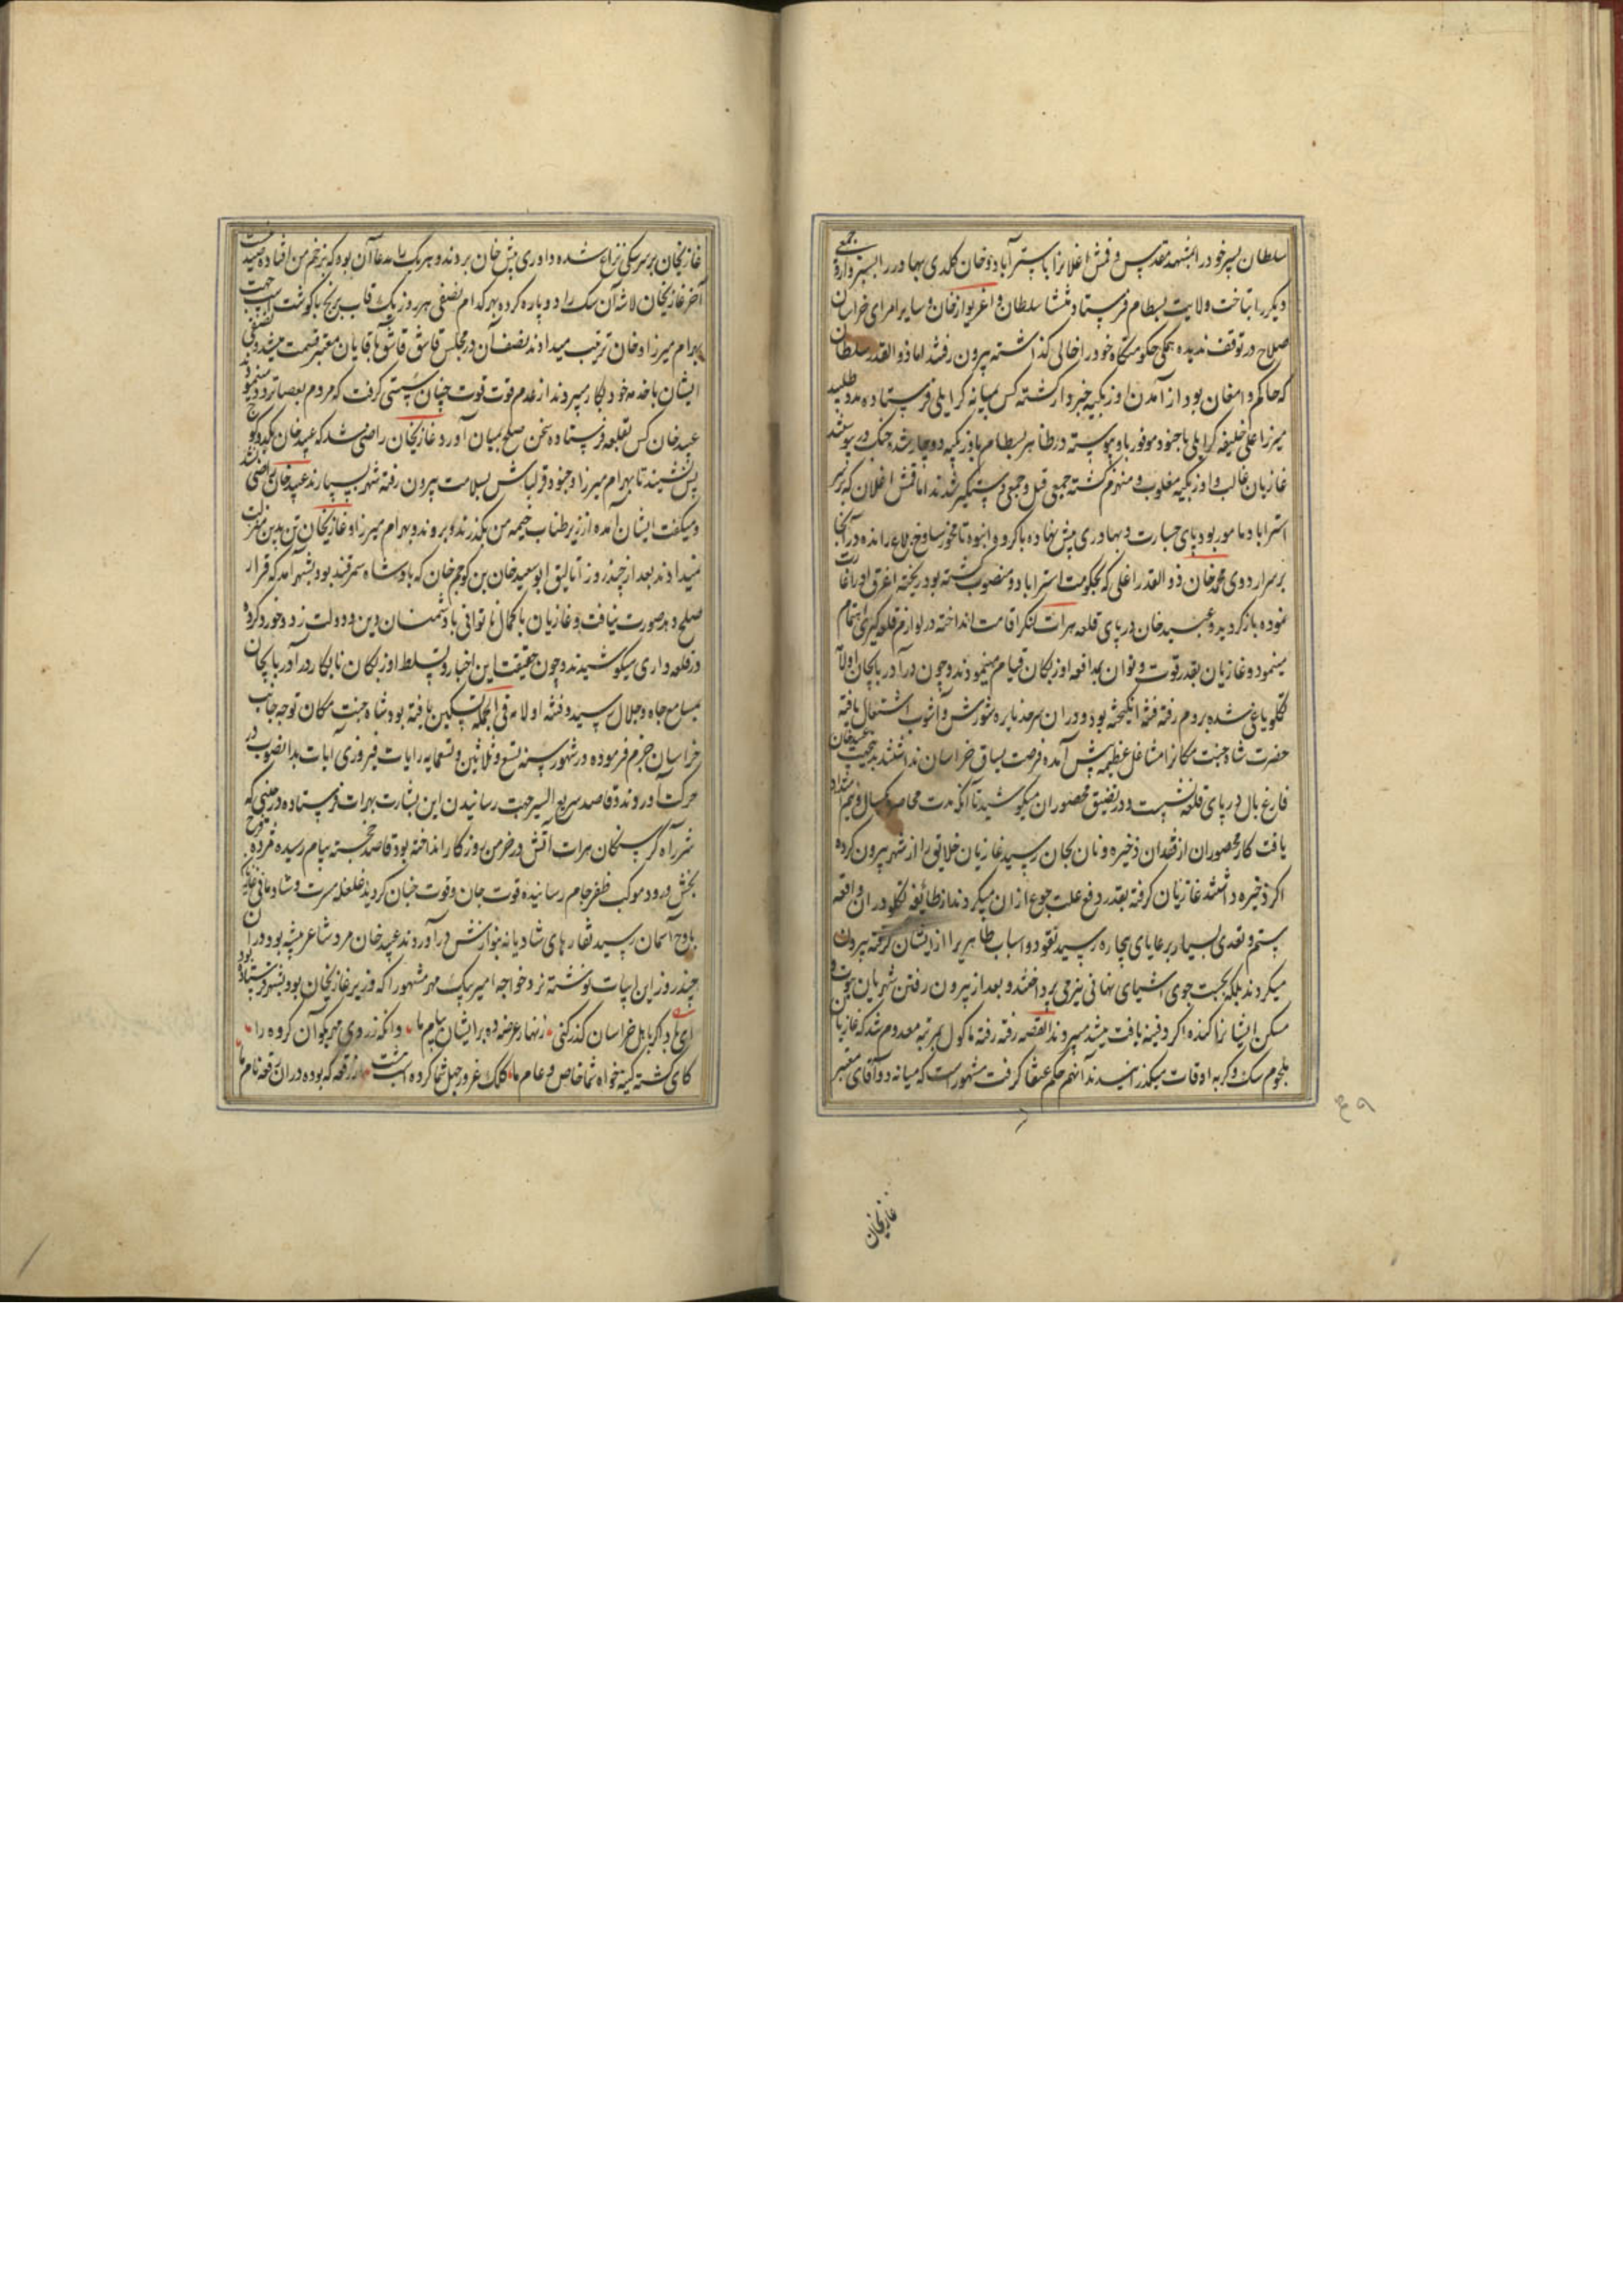 سلطان پسر خود را بمشهد مقدس و قمش اغلانرا باسترآباد و خان کلدی بهادر را بسبزوار و جمعی
دیگر را بتاخت ولایت بسطام فرستاد منتشا سلطان و اغزیوار خان و سایر امرای خراسان
صلاح در توقف ندیده همگی حکومتگاه خود را خالی گذاشته بیرون رفتند اما ذوالقدر سلطان
که حاکم دامغان بود از آمدن اوزبکیه خبردار گشته کس بمیانه کرایلی فرستاده مدد طلبید
میرزا علی خلیفه کرایلی با جنود موفور باو پیوسته در ظاهر بسطام باوزبکیه دوچار شده جنک در پیوستند
غازیان غالب و اوزبکیه مغلوب و منهزم گشته جمعی قتیل و جمعی دستگیر شدند اما قمش اغلان که بر سر
استراباد مامور بود پای جسارت و بهادری پیش نهاده با گروه انبوه تا بخوار ساوخ بلاغ رانده در آنجا
بر سر اردوی محمد خان ذوالقدر اغلی که بحکومت استراباد منصوب گشته بود ریخته اغرق او را غارت
نموده باز گردید و عبید خان در پای قلعه هرات لنگر اقامت انداخته در لوازم قلعه گیری اهتمام
مینمود و غازیان بقدر قوت و توان بمدافعه اوزبکان قیام مینمودند و چون در آذربایجان اولامه
تکلو یاغی شده بروم رفته فتنه انگیخته بود و در ان سرحد نایره شورش و آشوب اشتعال یافته
حضرت شاه جنت مکانرا مشاغل عظیمه پیش آمده فرصت یساق خراسان نداشتند بجهت عبید خان
فارغ بال در پای قلعه نشسته در تضییق محصوران میکوشید تا آنکه مدت محاصره یکسال و نیم امتداد
یافت کار محصوران از فقدان ذخیره و نان بجان رسید غازیان خلایق را از شهر بیرون کرده
اگر ذخیره داشتند غازیان گرفته بقدر دفع علت جوع از ان میکردند از طائفه تکلو در ان واقعه
ستم و تعدی بسیار بر رعایای بیچاره رسید نقود و اسباب ظاهر را از ایشان گرفته بیرون
میکردند بلکه بجست جوی اشیای نهانی نیز می پرداختند و بعد از بیرون رفتن شهریان بیوت و
مسکن ایشانرا کنده اگر دفینه یافت میشد میبردند القصه رفته رفته ماکول بمرتبه معدوم شد که غازیان
بلحوم سک و گربه اوقات میگذرانیدند آنهم حکم عنقا گرفت مشهور است که میانه دو آقای معتبر
غازیخان
غازیخان بر سر سکی نزاع شده داوری پیش خان بردند و هر یک را مدعا آن بود که بزخم من افتاده صید منست
آخر غازیخان لاشه آن سک را دو پاره کرده بهر کدام نصفی هر روز یک قاب برنج با گوشت اسب جهت
بهرام میرزا و خان ترتیب میدادند نصف آن در مجلس قاشق قاشق بآقایان معتبر قسمت میشد و نصفی
ایشان با خدمه خود بکار میبردند از عدم قوت قوت چنان سستی گرفت که مردم بعصا تردد مینمودند
عبید خان کس بقلعه فرستاده سخن صلح بمیان آورد غازیخان راضی شد که عبید خان یکدو کوچ
پس نشیند تا بهرام میرزا و جنود قزلباش بسلامت بیرون رفته شهر بسپارند عبید خان راضی نشد
و میگفت ایشان آمده از زیر طناب خیمه من بگذرند و بروند و بهرام میرزا و غازیخان تن بدین مذلت
نمیدادند بعد از چند روز آتالیق ابوسعید خان بن کوچم خان که پادشاه سمرقند بود بشهر آمد که قرار
صلح دهد صورت نیافت و غازیان با کمال ناتوانی با دشمنان دین و دولت زد و خورد کرده
در قلعه داری میکوشیدند و چون حقیقت این اخبار و تسلط اوزبکان نابکار در آذربایجان
بمسامع جاه و جلال رسید و فتنه اولامه فی الجمله تسکین یافته بود شاه جنت مکان توجه جانب
خراسان جزم فرموده در شهور سنه تسع و ثلاثین و تسعمایه رایات فیروزی آیات بدانصوب در
حرکت آوردند و قاصد سریع السیر جهت رسانیدن این بشارت بهرات فرستاده در حینی که
شرر آه گرسنگان هرات آتش در خرمن روزگار انداخته بود قاصد خجسته پیام رسیده مژده فرح
بخش ورود موکب ظفر فرجام رسانیده قوت جان و قوت جنان گردید غلغله مسرت و شادمانی غازیان
باوج آسمان رسید نقارهای شادیانه بنوازش در آوردند عبید خان مرد شاعر پیشه بود در ان
چند روز این ابیات نوشته نزد خواجه امیر بیک مهردار مشهور که وزیر غازیخان بود بشهر فرستاده بود
ای باد اگر باهل خراسان گذر کنی زنهار عرضه ده بر ایشان پیام ما وانگه ز روی مهر بگو آن گروه را
کای گشته کینه خواه شما خاص و عام ما کلک غرور جهل شما کرده است پشت از رقعه که بوده در ان رقعه نام ما